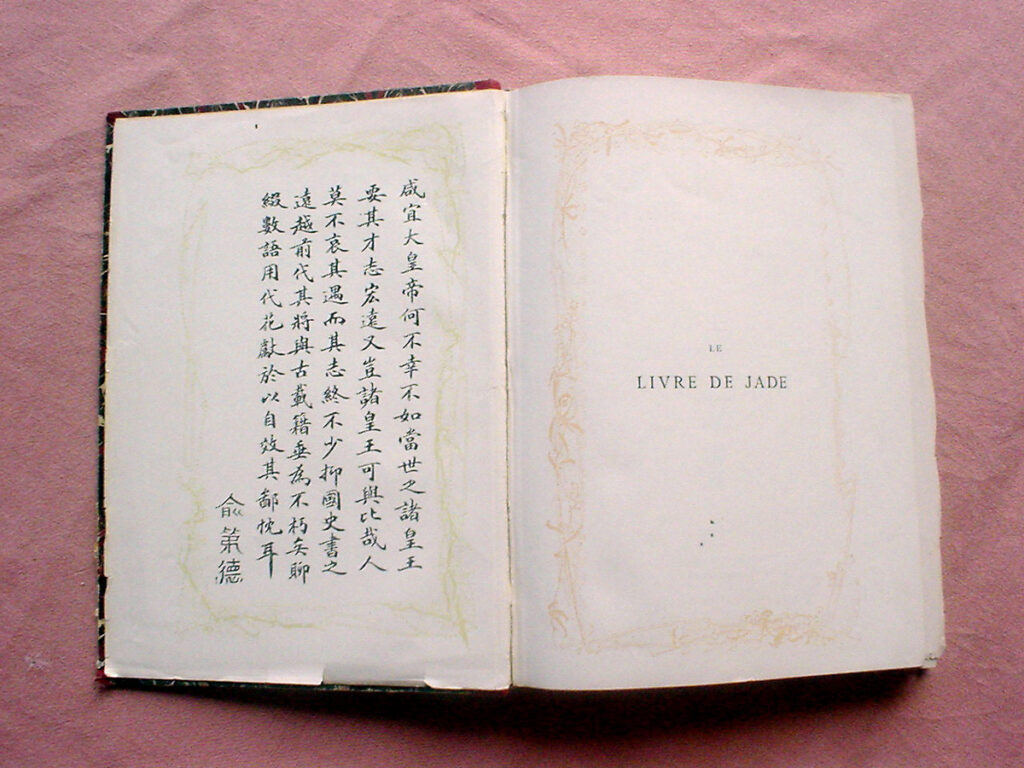 咸宜大皇帝何不幸不如當世之諸皇王
要其才志宏遠又豈諸皇王可與比哉人
莫不哀其遇而其志終不少抑國史書之
遠越前代其將與古載籍垂為不朽矣聊
綴數語用代花獻於以自效其鄙忱耳
俞第德
LE
LIVRE DE JADE